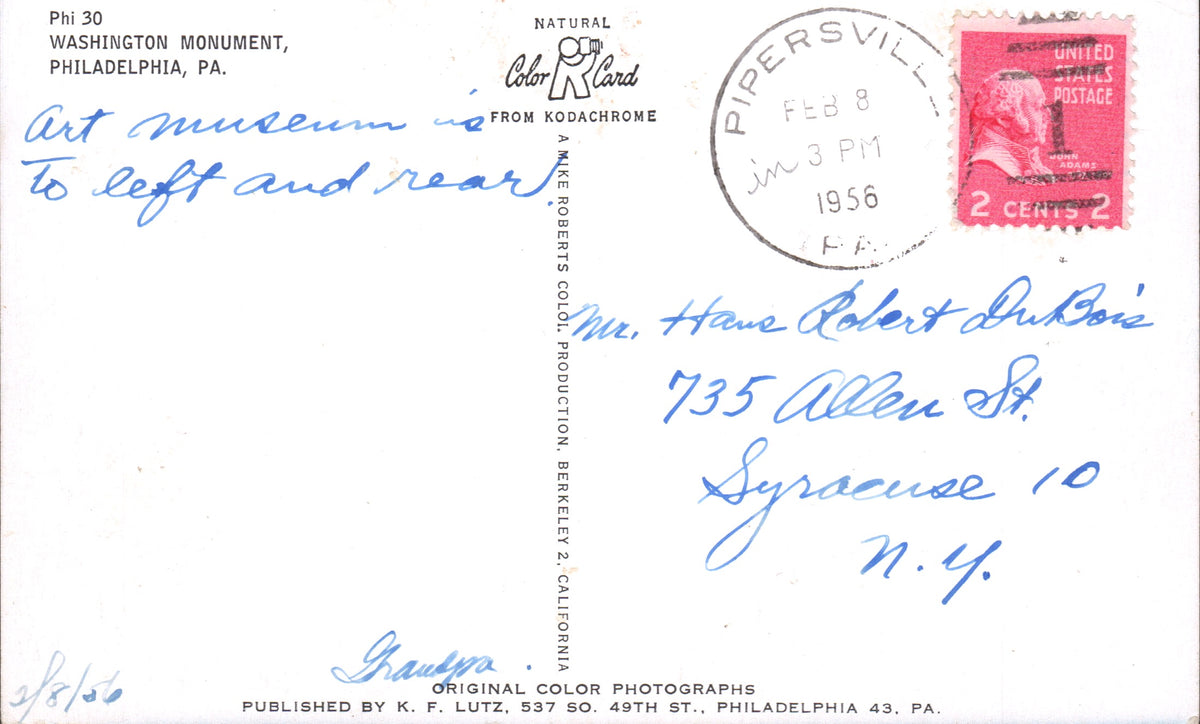 Phi 30
WASHINGTON MONUMENT,
PHILADELPHIA, PA.
Art museum is
To left and rear.
Grandpa.
2/8/56
NATURAL
Color Card
FROM KODACHROME
A MIKE ROBERTS COLOR PRODUCTION, BERKELEY 2, CALIFORNIA
PIPERSVILL
FEB 8
in 3 PM
1956
PA
UNITED
STATES
POSTAGE
1
JOHN
ADAMS
2 CENTS 2
Mr. Hans Robert DuBois
735 Allen St.
Syracuse 10
N.Y.
ORIGINAL COLOR PHOTOGRAPHS
PUBLISHED BY K. F. LUTZ, 537 SO. 49TH ST., PHILADELPHIA 43, PA.